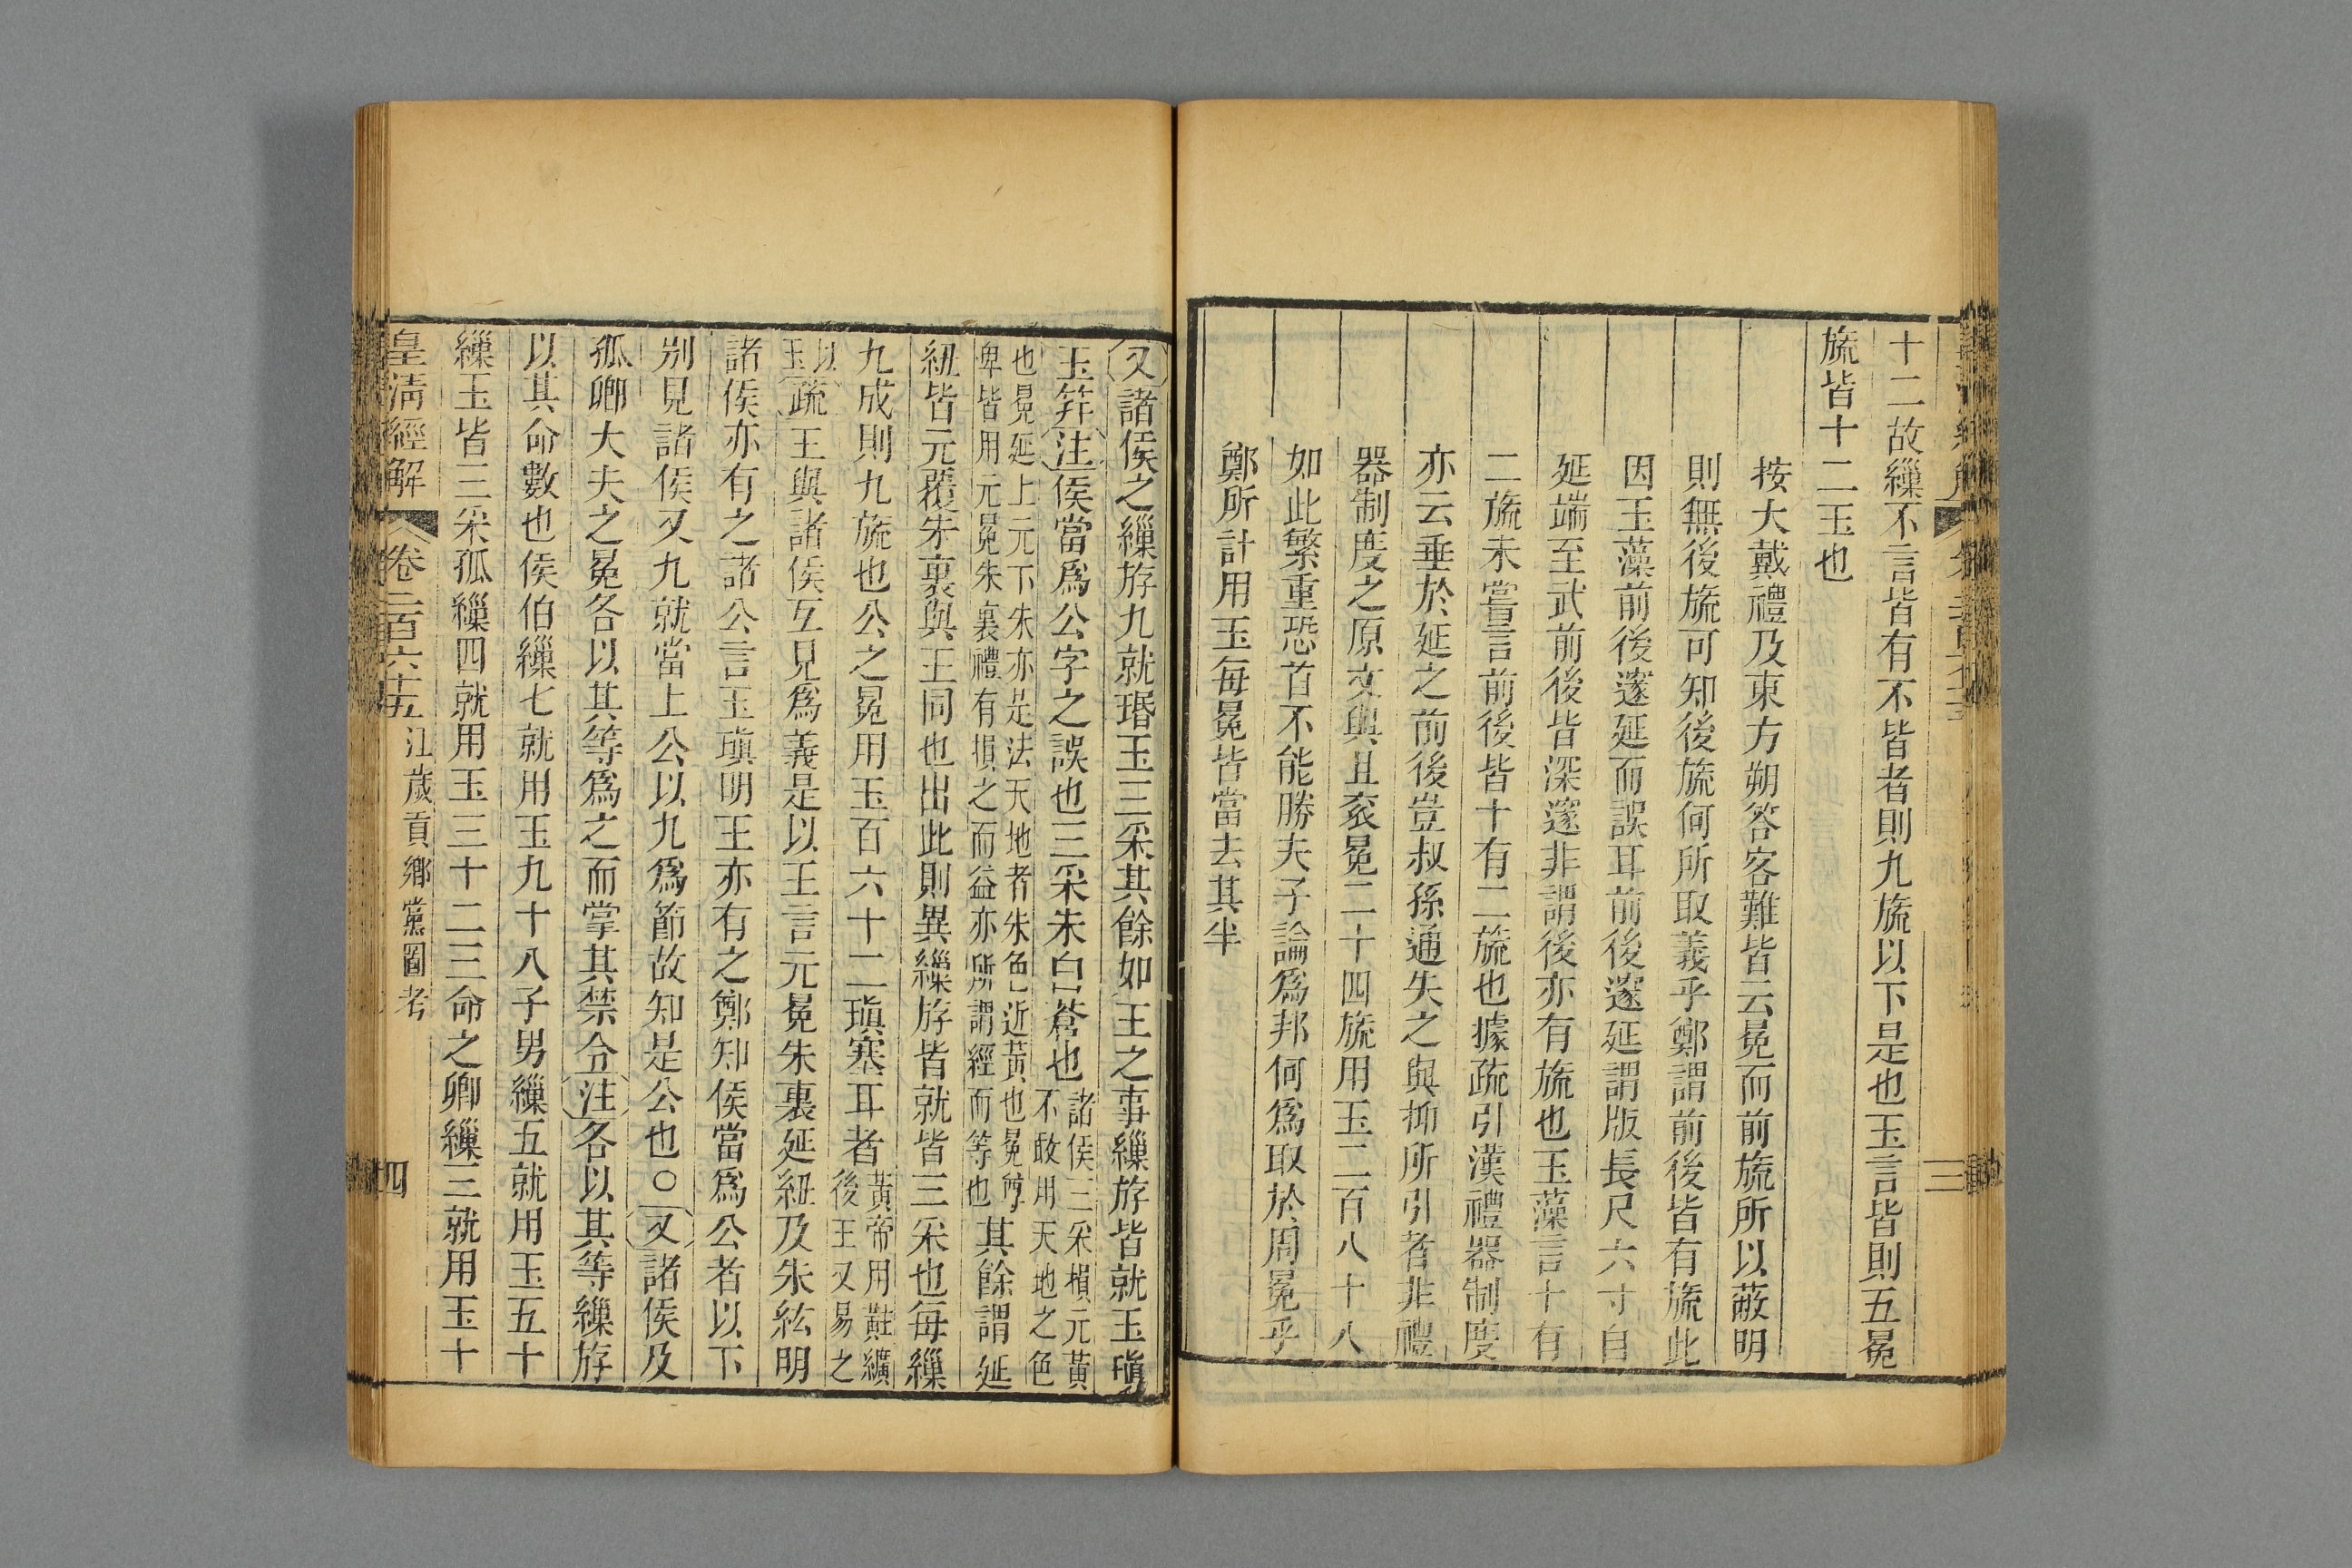 十二故繅不言皆有不皆者則九旒以下是也玉言皆則五冕
旒皆十二玉也
按大戴禮及東方朔答客難皆云冕而前旒所以蔽明
則無後旒可知後旒何所取義乎鄭謂前後皆有旒此
因玉藻前後邃延而誤耳前後邃延謂版長尺六寸自
延端至武前後皆深邃非謂後亦有旒也玉藻言十有
二旒未嘗言前後皆十有二旒也據疏引漢禮器制度
亦云垂於延之前後豈叔孫通失之與抑所引者非禮
器制度之原文與且袞冕二十四旒用玉二百八十八
如此繁重恐首不能勝夫子論為邦何為取於周冕乎
鄭所計用玉每冕皆當去其半
又諸侯之繅斿九就瑉玉三采其餘如王之事繅斿皆就玉瑱
玉笄注侯當爲公字之誤也三采朱白蒼也
諸侯三采損元黃
不敢用天地之色
也冕延上元下朱亦是法天地者朱色近黃也冕尊
卑皆用元冕朱裏禮有損之而益亦所謂經而等也
其餘謂延
紐皆元覆朱裏與王同也出此則異繅斿皆就皆三采也每繅
九成則九旒也公之冕用玉百六十二瑱塞耳者
黃帝用黈纊
後王又易之
以
玉
疏王與諸侯互見爲義是以王言元冕朱裏延紐及朱紘明
諸侯亦有之諸公言玉瑱明王亦有之鄭知侯當爲公者以下
別見諸侯又九就當上公以九爲節故知是公也○又諸侯及
孤卿大夫之冕各以其等爲之而掌其禁令注各以其等繅斿
以其命數也侯伯繅七就用玉九十八子男繅五就用玉五十
繅玉皆三采孤繅四就用玉三十二三命之卿繅三就用玉十
皇清經解
卷二百六十五
江歲貢鄉黨圖考
四
三